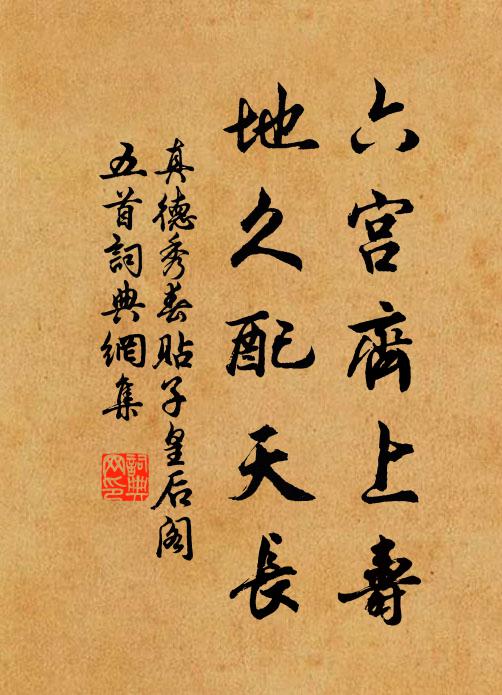 六宮齊上壽
地久配天長
真德秀春貼子皇后阁
五首詞典網集
詞典
网印